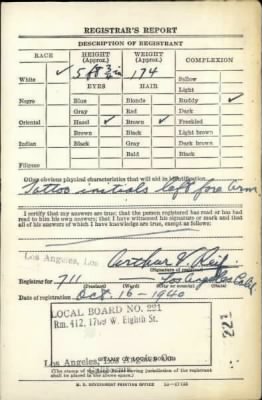 REGISTRAR'S REPORT
DESCRIPTION OF REGISTRANT
RACE HEIGHT (Approx.) WEIGHT (Approx.) COMPLEXION
White ✓ 5 ft 8 1/2 in 174 Sallow
EYES HAIR Light
Negro Blue Blonde Ruddy ✓
Gray Red Dark
Oriental Hazel ✓ Brown ✓ Freckled
Brown Black Light brown
Indian Black Gray Dark brown
Bald Black
Filipino
Other obvious physical characteristics that will aid in identification
Tattoo initials left fore arm
I certify that my answers are true; that the person registered has read or has had
read to him his own answers; that I have witnessed his signature or mark and that
all of his answers of which I have knowledge are true, except as follows:
Los Angeles, Los
Arthur V. Reif
(Signature of registrar)
Registrar for 711 Los Angeles Calif
Date of registration Oct. 16 - 1940
LOCAL BOARD NO. 221
Rm. 412, 1709 W. Eighth St.
221
Los Angeles, Los Angeles Co.
(STAMP OF LOCAL BOARD)
(The stamp of the Local Board having jurisdiction of the registrant
shall be placed in the above space)
U. S. GOVERNMENT PRINTING OFFICE